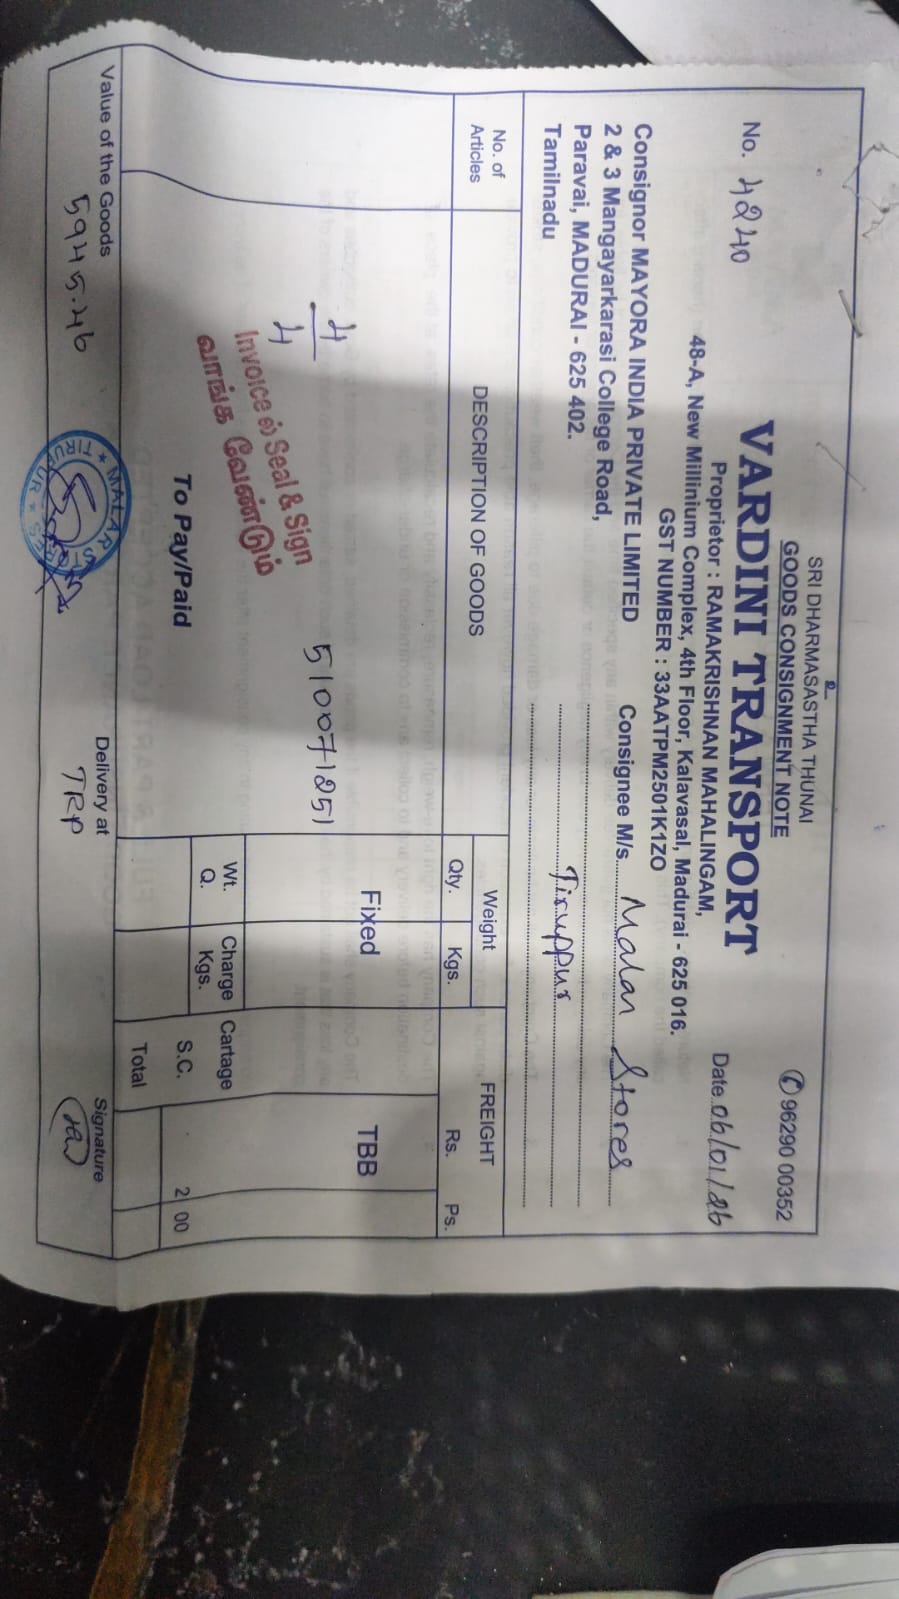 உ
SRI DHARMASASTHA THUNAI
GOODS CONSIGNMENT NOTE
✆ 96290 00352
VARDINI TRANSPORT
No. 4240
Proprietor : RAMAKRISHNAN MAHALINGAM,
Date 06/01/26
48-A, New Millinium Complex, 4th Floor, Kalavasal, Madurai - 625 016.
GST NUMBER : 33AATPM2501K1ZO
Consignor MAYORA INDIA PRIVATE LIMITED
2 & 3 Mangayarkarasi College Road,
Paravai, MADURAI - 625 402.
Tamilnadu
Consignee M/s. Malar Stores
Tiruppur
No. of Articles
DESCRIPTION OF GOODS
Weight
Qty. Kgs.
FREIGHT
Rs. Ps.
4/4
510071251
Fixed
TBB
Invoice ல் Seal & Sign
வாங்க வேண்டும்
Wt. Q.
Charge Kgs.
Cartage
To Pay/Paid
S.C. 2 00
Total
Value of the Goods
5945.46
MALAR STORES
★ TIRUPUR ★
Delivery at
TRP
Signature